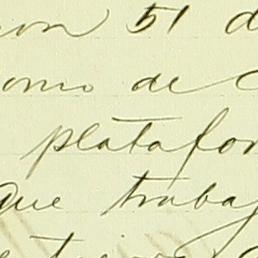 on 51 d
omo de C
platafor
que trabaj